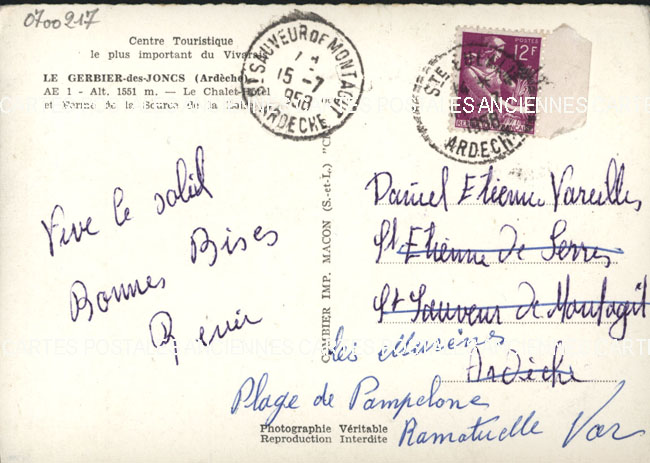 0700217
Centre Touristique
le plus important du Vivarais
LE GERBIER-des-JONCS (Ardèche)
AE 1 - Alt. 1551 m. — Le Chalet-Hôtel
et Ferme de la Source de la Loire
ST SAUVEUR DE MONTAGUT
15-7
1958
ARDECHE
POSTES
12F
STE
1958
ARDECHE
Vive le soleil
Bonnes Bises
CELLARD IMP. MACON (S.-et-L.)
Daniel Etienne Vareilles
St Etienne de Serres
St Sauveur de Montagut
Ardèche
les
Plage de Pampelone
Ramatuelle Var
Photographie Véritable
Reproduction Interdite
CARTES POSTALES ANCIENNES